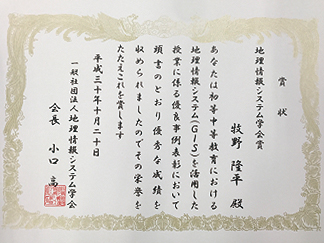 賞状
地理情報システム学会賞
牧野 隆平 殿
あなたは初等中等教育における
地理情報システム(GIS)を活用した
授業に係る優良事例表彰において
頭書のとおり優秀な成績を
収められましたのでその栄誉を
たたえこれを賞します
平成三十年十月二十日
一般社団法人地理情報システム学会
会長 小口 高